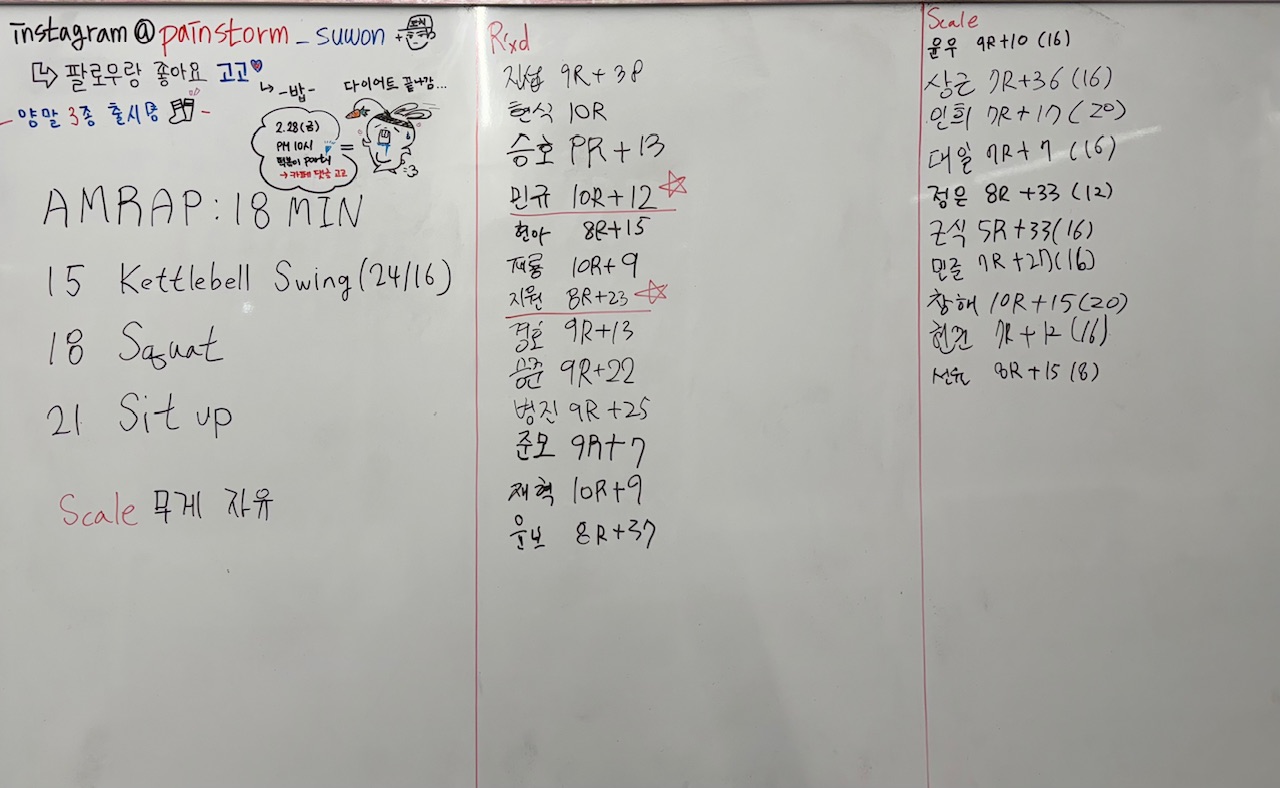 instagram@painstorm_suwon +
팔로우랑 좋아요 고고
양말 3종 출시
-밥-
다이어트 끝나감...
2.28(금)
PM 10시
떡볶이 party
→카페 댓글 고고
AMRAP: 18 MIN
15 Kettlebell Swing (24/16)
18 Squat
21 Sit up
Scale 무게 자유
R'xd
진섭 9R+38
현식 10R
승호 PR+13
민규 10R+12
현아 8R+15
재룡 10R+9
지원 8R+23
경호 9R+13
9R+22
병진 9R+25
준모 9R+7
재혁 10R+9
윤보 8R+37
Scale
윤우 9R+10 (16)
상근 7R+36 (16)
인희 7R+17 (20)
대일 7R+7 (16)
정은 8R+33 (12)
근식 5R+33 (16)
민준 7R+27 (16)
창해 10R+15 (20)
7R+12 (16)
8R+15 (8)